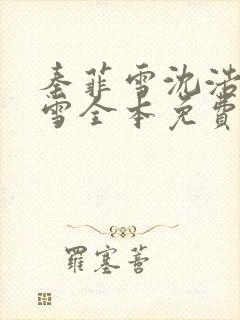 秦菲雪沈浩
雪全本免費
羅塞菩